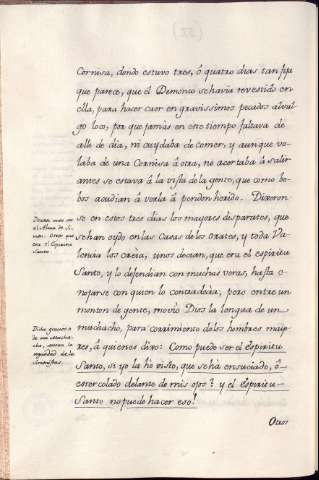 Cornisa, donde estuvo tres, ó quatro dias tan fija
que parece, que el Demonio se havia revestido en
ella, para hacer caer en gravissimos pecados al vul-
go loco, por que jamás en este tiempo faltava de
alli de dia, ni cuydaba de comer, y aunque vo-
laba de una Cornisa á otra, no acertaba á salir
antes se estava á la vista de la gente, que como bo-
bos acudian á verla á pendon herido. Dixeron
se en estos tres dias los mayores disparates, que
se han oydo en las Casas de los orates, y toda Va-
lencia los creia, unos decian, que era el espiritu
Santo, y lo defendian con muchas voces, hasta e-
nojarse con quien lo contradecia; pero entre un
monton de gente, movio Dios la lengua de un
muchacho, para corrimiento de los hombres mayo-
res, á quienes dixo: Como puede ser el Espiritu
Santo, si yo la hé visto, que se há ensuciado, ó
estercolado delante de mis ojos? y el Espiritu
Santo no puede hacer eso!
Otros
Dicen unos ser
el Alma de Si-
mon: Otros que
era el Espiritu
Santo.
Dicho gracioso
de un Mucha-
cho,